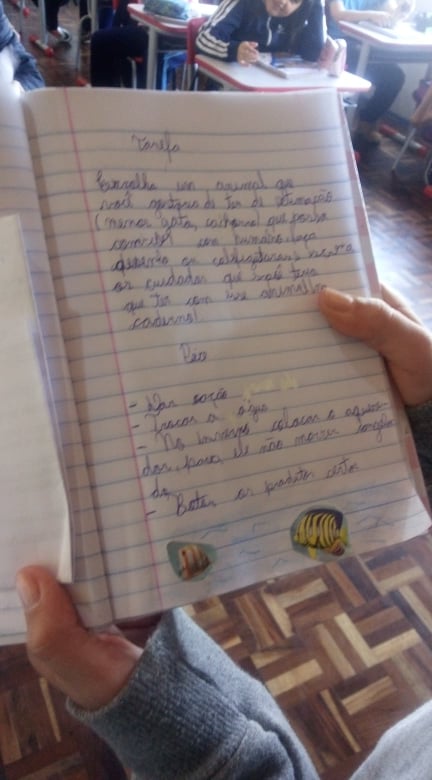 Tarefa
Escolha um animal que
você gostaria de ter de estimação
(menos gato, cachorro) que possa
conviver com humano, faça
desenho ou cole
os cuidados que você teria
que ter com esse animal no
caderno!
Peixe
- Dar ração
- Trocar a água
- No inverno colocar o aquece-
dor, para ele não morrer congela
do,
- Botar os produtos certos